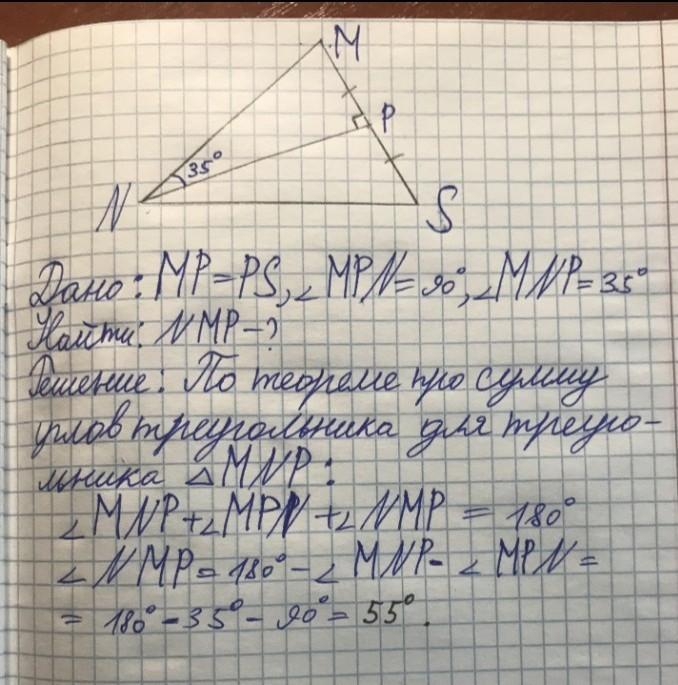 M
P
35°
N
S
Дано: MP=PS, ∠MPN=90°, ∠MNP=35°
Найти: NMP-?
Решение: По теореме про сумму
углов треугольника для треуго-
льника △MNP:
∠MNP+∠MPN+∠NMP=180°
∠NMP=180°-∠MNP-∠MPN=
=180°-35°-90°=55°.